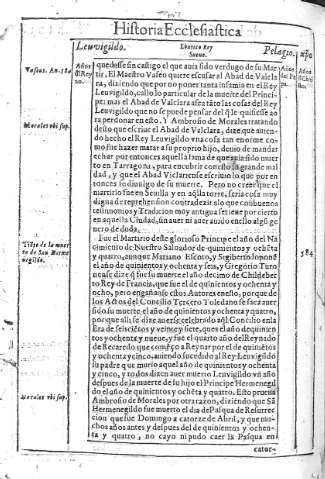 Historia Ecclesiastica
Leuvigildo.
Pelagio.
quedasse sin castigo el que auia sido verdugo de su Mar
tir. El Maestro Vaseo quiere escusar al Abad de Valcla
ra, diziendo que por no poner tanta infamia en el Rey
Leuvigildo, callo lo particular de la muerte del Princi-
pe: mas el Abad de Valclara
Rey Leuvigildo que no se puede pensar del q̃ le quisiesse ao
ra perdonar en esto. Y Ambrosio de Morales tratando
desto que escriue el Abad de Valclara, dize que auien
do hecho el Rey Leuvigildo vna cosa tan enorme co-
mo fue hazer matar a su proprio hijo, deuio de mandar
echar por entonces aquella fama de que auia sido muer
to en Tarragona, para encubrir con esto la grande mal
dad, y que el Abad escriuio lo que por en
tonces so diuulgo de su muerte. Pero no creer que el
martirio fue en Seuilla y en aq̃lla torre, seria cosa muy
digna de reprehension
testimonios y Tradicion muy antigua se tiene por cierto
en aquella Ciudad, sin auer ni auer auido en ello algũ ge
nero de duda.
Fue el Martirio deste glorioso Principe el año del Na
cimiento de Nuestro Saluador de quinientos y ochẽta
y quatro, aunque Mariano Escoto, y Sigiberto ponẽ
el año de quinientos y ochenta y seis, y Gregorio Turo
nẽse dize q̃ fue su muerte el año decimo de Childeber
to Rey de Francia, que fue el de quinientos y ochenta y
ocho, pero engañanse estos Autores en esto, porque de
los Actos del Concilio Tercero Toledano se saca auer
sido su muerte el año de quinientos y ochenta y quatro,
por que alli se dize auerse celebrado aq̃l Concilio en la
Era de seiscientos y veinte y siete, que es el año de quiniẽtos
y ochenta y nueue, y fue el quarto año del Reynado
de Recaredo que començo a Reynar por el de quiniẽtos
y ochenta y cinco, auiendo sucedido al Rey Leuvigildo
su padre que murio aquel año de quinientos y ochenta
y cinco, y todos dizen auer muerto Leuvigildo vn año
despues de la muerte de su hijo el Principe Hermenegil
do el año de quinientos y ochẽta y quatro. Esto prueua
Ambrosio de Morales por otra razon, diziendo que Sã
Hermenegildo fue muerto el dia de Pasqua de Resurrec
cion que fue Domingo a catorze de Abril, y que mu-
chos años antes y despues del de quinientos y ochen-
ta y quatro, no cayo ni pudo caer la Pasqua en
cator-
Morales vbi sup.
Tiẽpo de la muer
te de San Herme
negildo.
584
Morales vbi sup.